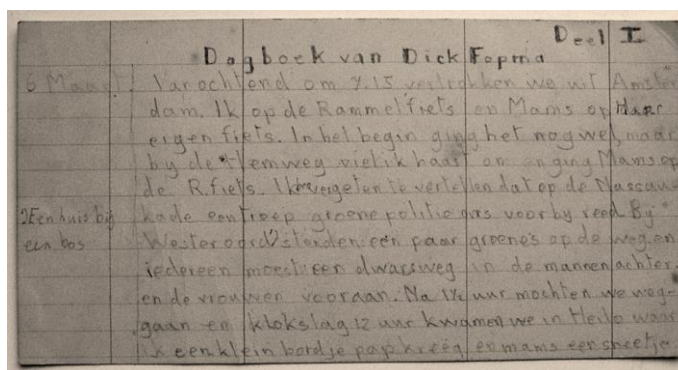 Deel I
Dagboek van Dick Fopma
6 Maart! Vanochtend om 7.15 vertrokken we uit Amster
dam. Ik op de Rammelfiets en Mams op Haar
eigen fiets. In het begin ging het nog wel, maar
by de Hemweg viel ik haast om en ging Mams op
de R.fiets. Ik vergeten te vertellen dat op de Nassau
kade een troep groene politie ons voorby reed. By
Een huis bij
een bos
Westeroord stonden een paar groene's op de weg, en
iedereen moest een dwarsweg in de mannen achter
en de vrouwen vooraan. Na 1½ uur mochten we weg-
gaan en klokslag 12 uur kwamen we in Heilo waar
ik een klein bordje pap kreeg en mams een sneetje